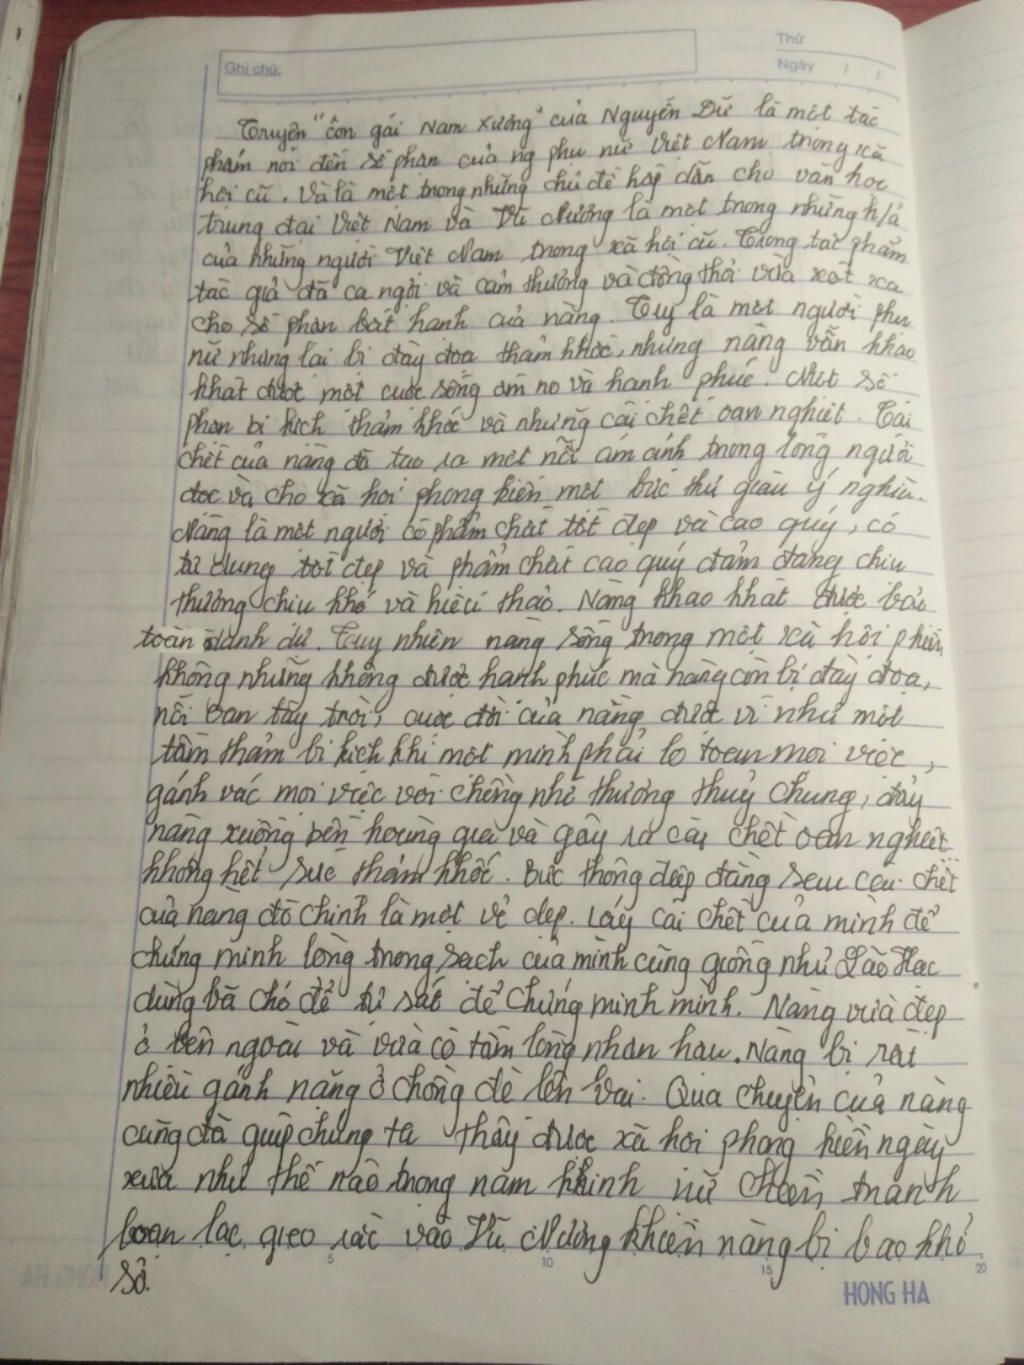 Thứ
Ghi chú:
Ngày / /
Truyện "côn gái Nam Xương" của Nguyễn Dữ là một tác
phẩm nói đến số phận của ng phụ nữ Việt Nam trong xã
hội cũ. Và là một trong những chủ đề hấp dẫn cho văn học
trung đại Việt Nam và Vũ Nương là một trong những h/ả
của những người Việt Nam trong xã hội cũ. Trong tác phẩm
tác giả đã ca ngợi và cảm thương và đồng thời vừa xót xa
cho số phận bất hạnh của nàng. Tuy là một người phụ
nữ nhưng lại bị đày đọa thảm khốc, nhưng nàng vẫn khao
khát được một cuộc sống ấm no và hạnh phúc. Một số
phận bi kịch thảm khốc và những cái chết oan nghiệt. Cái
chết của nàng đã tạo ra một nỗi ám ảnh trong lòng người
đọc và cho xã hội phong kiến một bức thư giàu ý nghĩa.
Nàng là một người có phẩm chất tốt đẹp và cao quý, có
tư dung tốt đẹp và phẩm chất cao quý đảm đang chịu
thương chịu khó và hiếu thảo. Nàng khao khát được bảo
toàn danh dự. Tuy nhiên nàng sống trong một xã hội phiền
không những không được hạnh phúc mà nàng còn bị đày đọa,
nỗi oan tày trời, cuộc đời của nàng được ví như một
tấm thảm bi kịch khi một mình phải lo toan mọi việc,
gánh vác mọi việc với chồng nhớ thương thuỷ chung, đẩy
nàng xuống bến hoàng giã và gây ra cái chết oan nghiệt
không hết sức thảm khốc. Bức thông điệp đằng sau cái chết
của nàng đó chính là một vẻ đẹp. Lấy cái chết của mình để
chứng minh lòng trong sạch của mình cũng giống như Lão Hạc
dùng bã chó để tự sát để chứng minh mình. Nàng vừa đẹp
ở bên ngoài và vừa có tấm lòng nhân hậu. Nàng bị rất
nhiều gánh nặng ở chồng đè lên vai. Qua chuyện của nàng
cũng đã giúp chúng ta thấy được xã hội phong kiến ngày
xưa như thế nào trong năm khinh nữ chiến tranh
loạn lạc gieo rắc vào Vũ Nương khiến nàng bị bao khổ
sở.
5 10 15 20
HONG HA